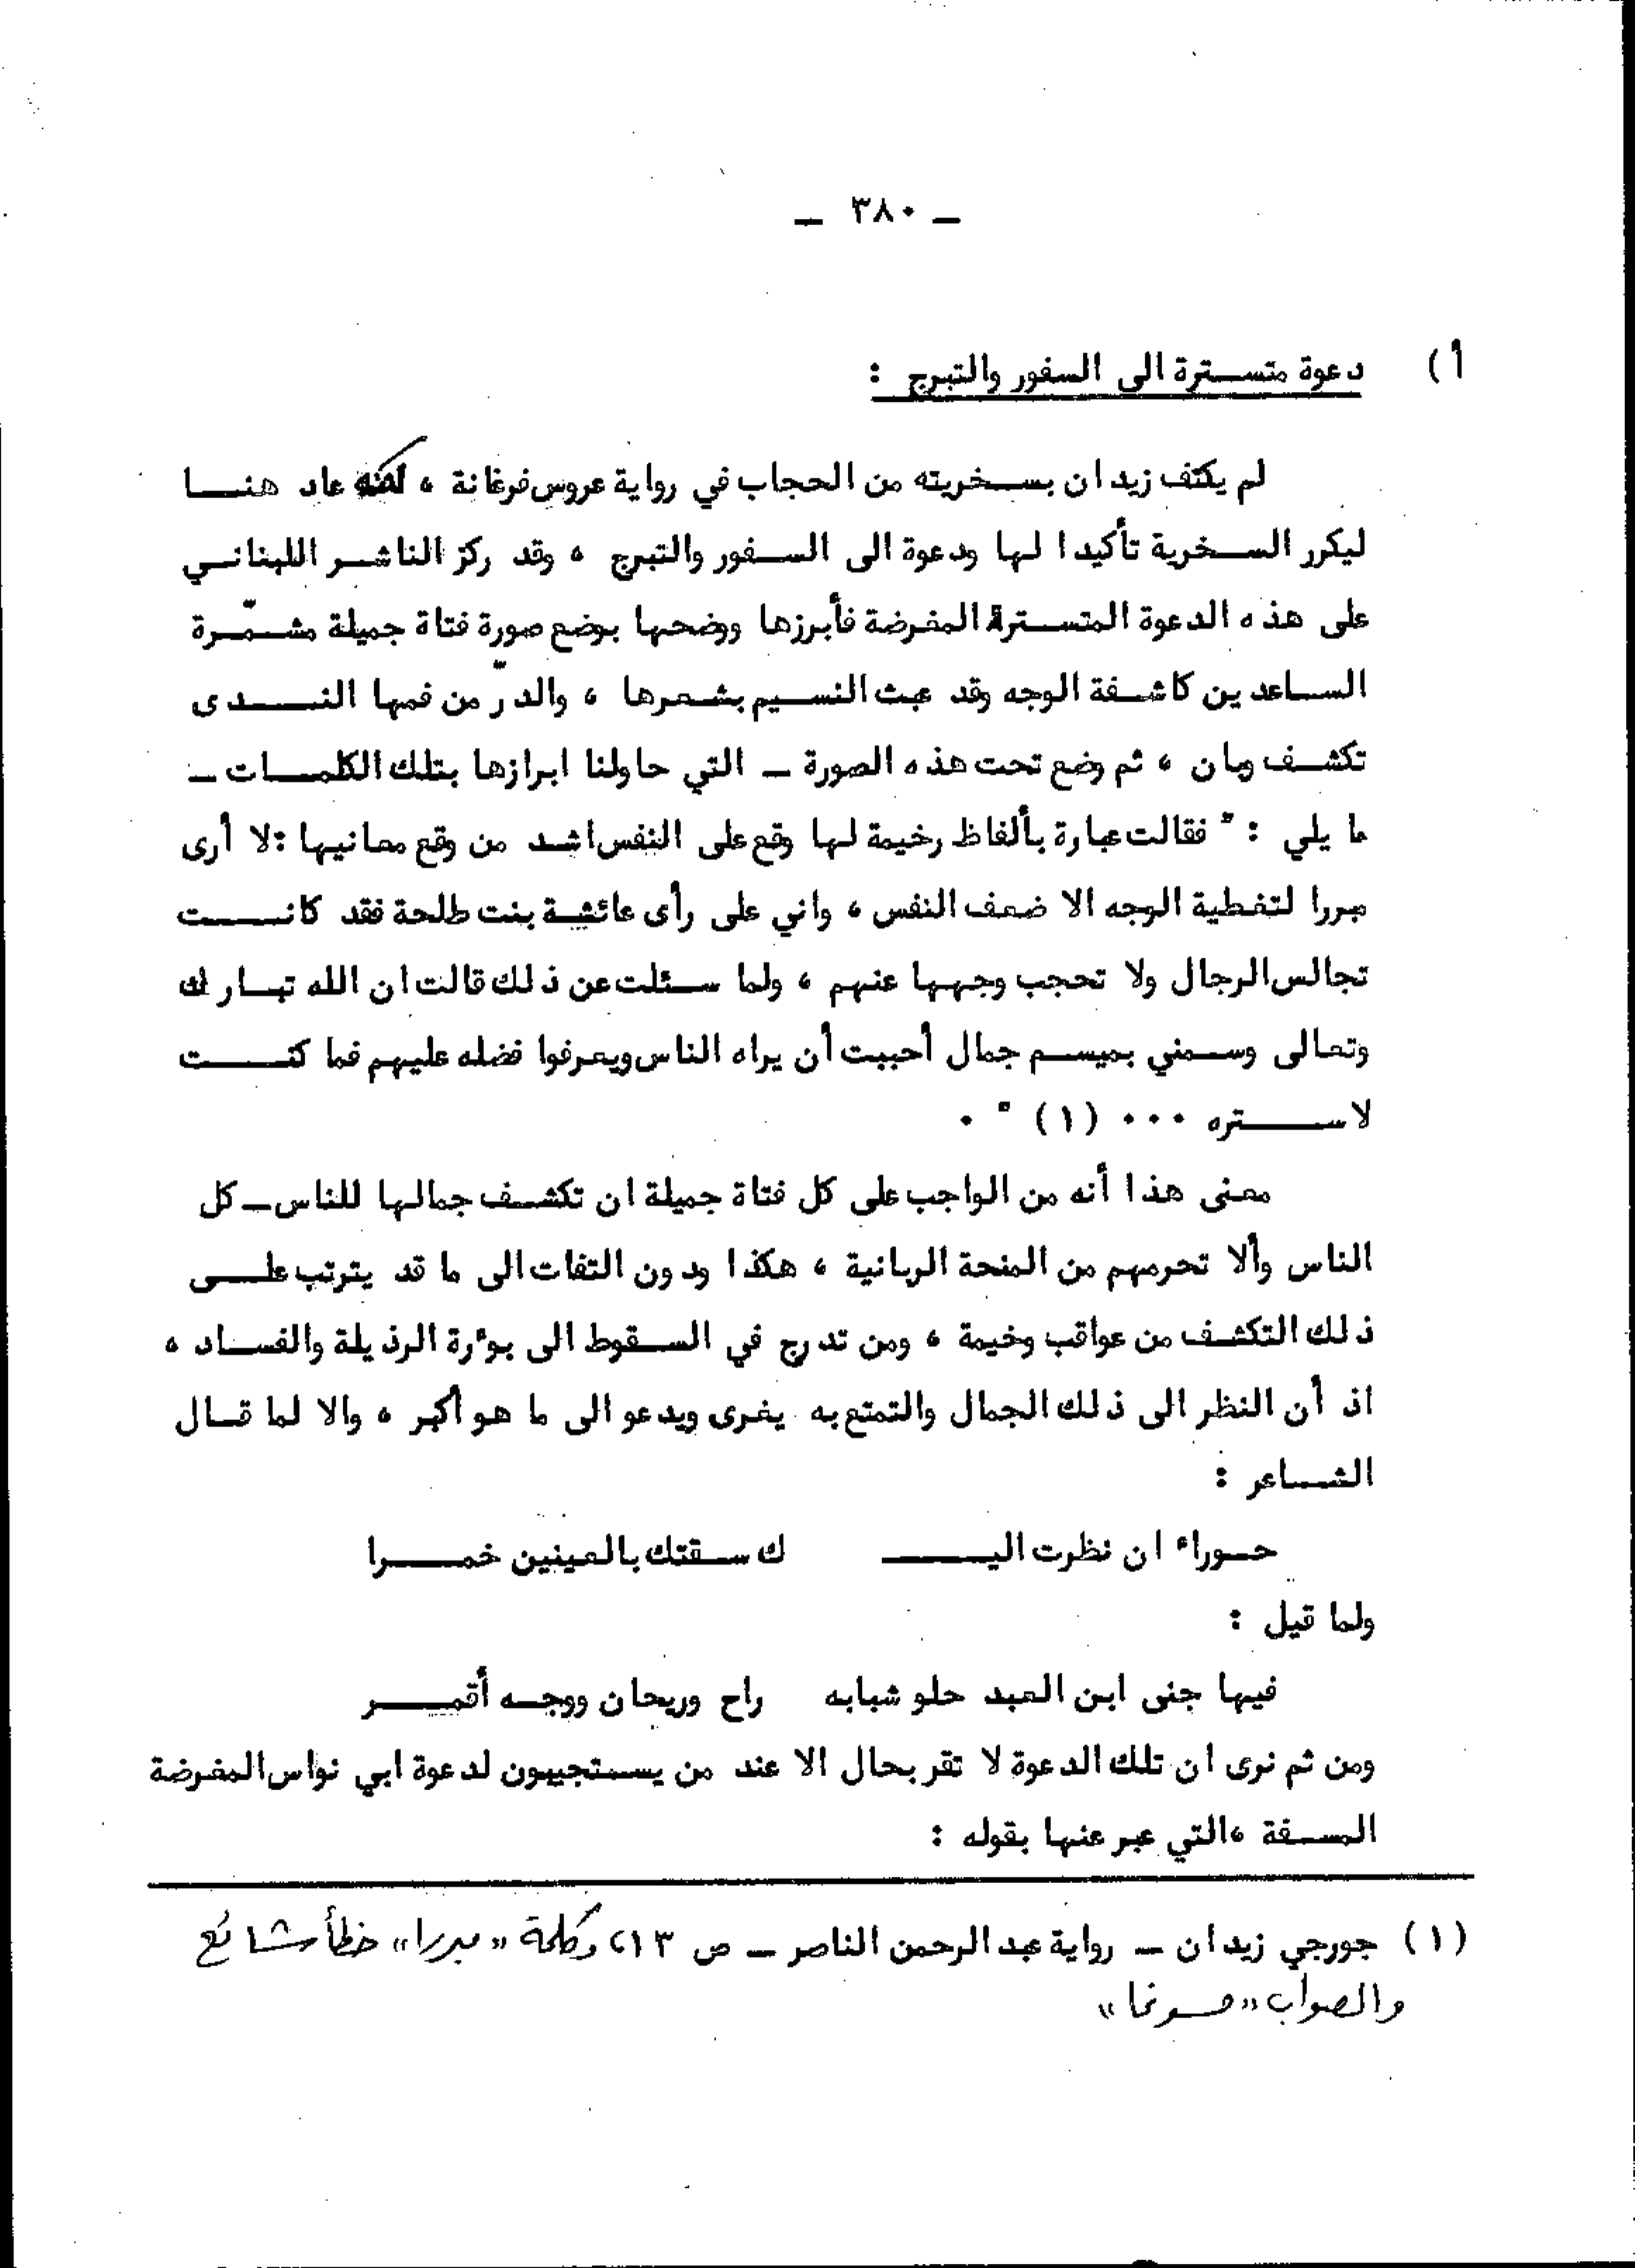 ـ ٣٨٠ ـ
أ) دعوة متسترة الى السفور والتبرج :
لم يكتف زيدان بسخريته من الحجاب في رواية عروس فرغانة ، لكنه عاد هنا
ليكرر السخرية تأكيدا لها ودعوة الى السفور والتبرج ، وقد ركز الناشر اللبناني
على هذه الدعوة المتسترة المغرضة فأبرزها ووضحها بوضع صورة فتاة جميلة مشمّرة
الساعدين كاشفة الوجه وقد عبث النسيم بشعرها ، والدرّ من فمها الندى
تكشف وبان ، ثم وضع تحت هذه الصورة ـ التي حاولنا ابرازها بتلك الكلمات ـ
ما يلي : " فقالت عبارة بألفاظ رخيمة لها وقع على النفس اشد من وقع معانيها : لا أرى
مبررا لتغطية الوجه الا ضعف النفس ، واني على رأى عائشة بنت طلحة فقد كانت
تجالس الرجال ولا تحجب وجهها عنهم ، ولما سئلت عن ذلك قالت ان الله تبارك
وتعالى وسمني بميسم جمال أحببت أن يراه الناس ويعرفوا فضله عليهم فما كنت
لاستره ٠٠٠ (١) " ٠
معنى هذا أنه من الواجب على كل فتاة جميلة ان تكشف جمالها للناس ـ كل
الناس وألا تحرمهم من المنحة الربانية ، هكذا ودون التفات الى ما قد يترتب على
ذلك التكشف من عواقب وخيمة ، ومن تدرج في السقوط الى بوءرة الرذيلة والفساد ،
اذ أن النظر الى ذلك الجمال والتمتع به يغرى ويدعو الى ما هو أكبر ، والا لما قال
الشاعر :
حوراء ان نظرت اليـ ك سقتك بالعينين خمرا
ولما قيل :
فيها جنى ابن العبد حلو شبابه راح وريحان ووجه أقمر
ومن ثم نرى ان تلك الدعوة لا تقر بحال الا عند من يستجيبون لدعوة ابي نواس المغرضة
المسفة ، والتي عبر عنها بقوله :
(١) جورجي زيدان ـ رواية عبد الرحمن الناصر ـ ص ١٣ ، وكلمة « مبررا » خطأ شائع
والصواب « مسوغا »